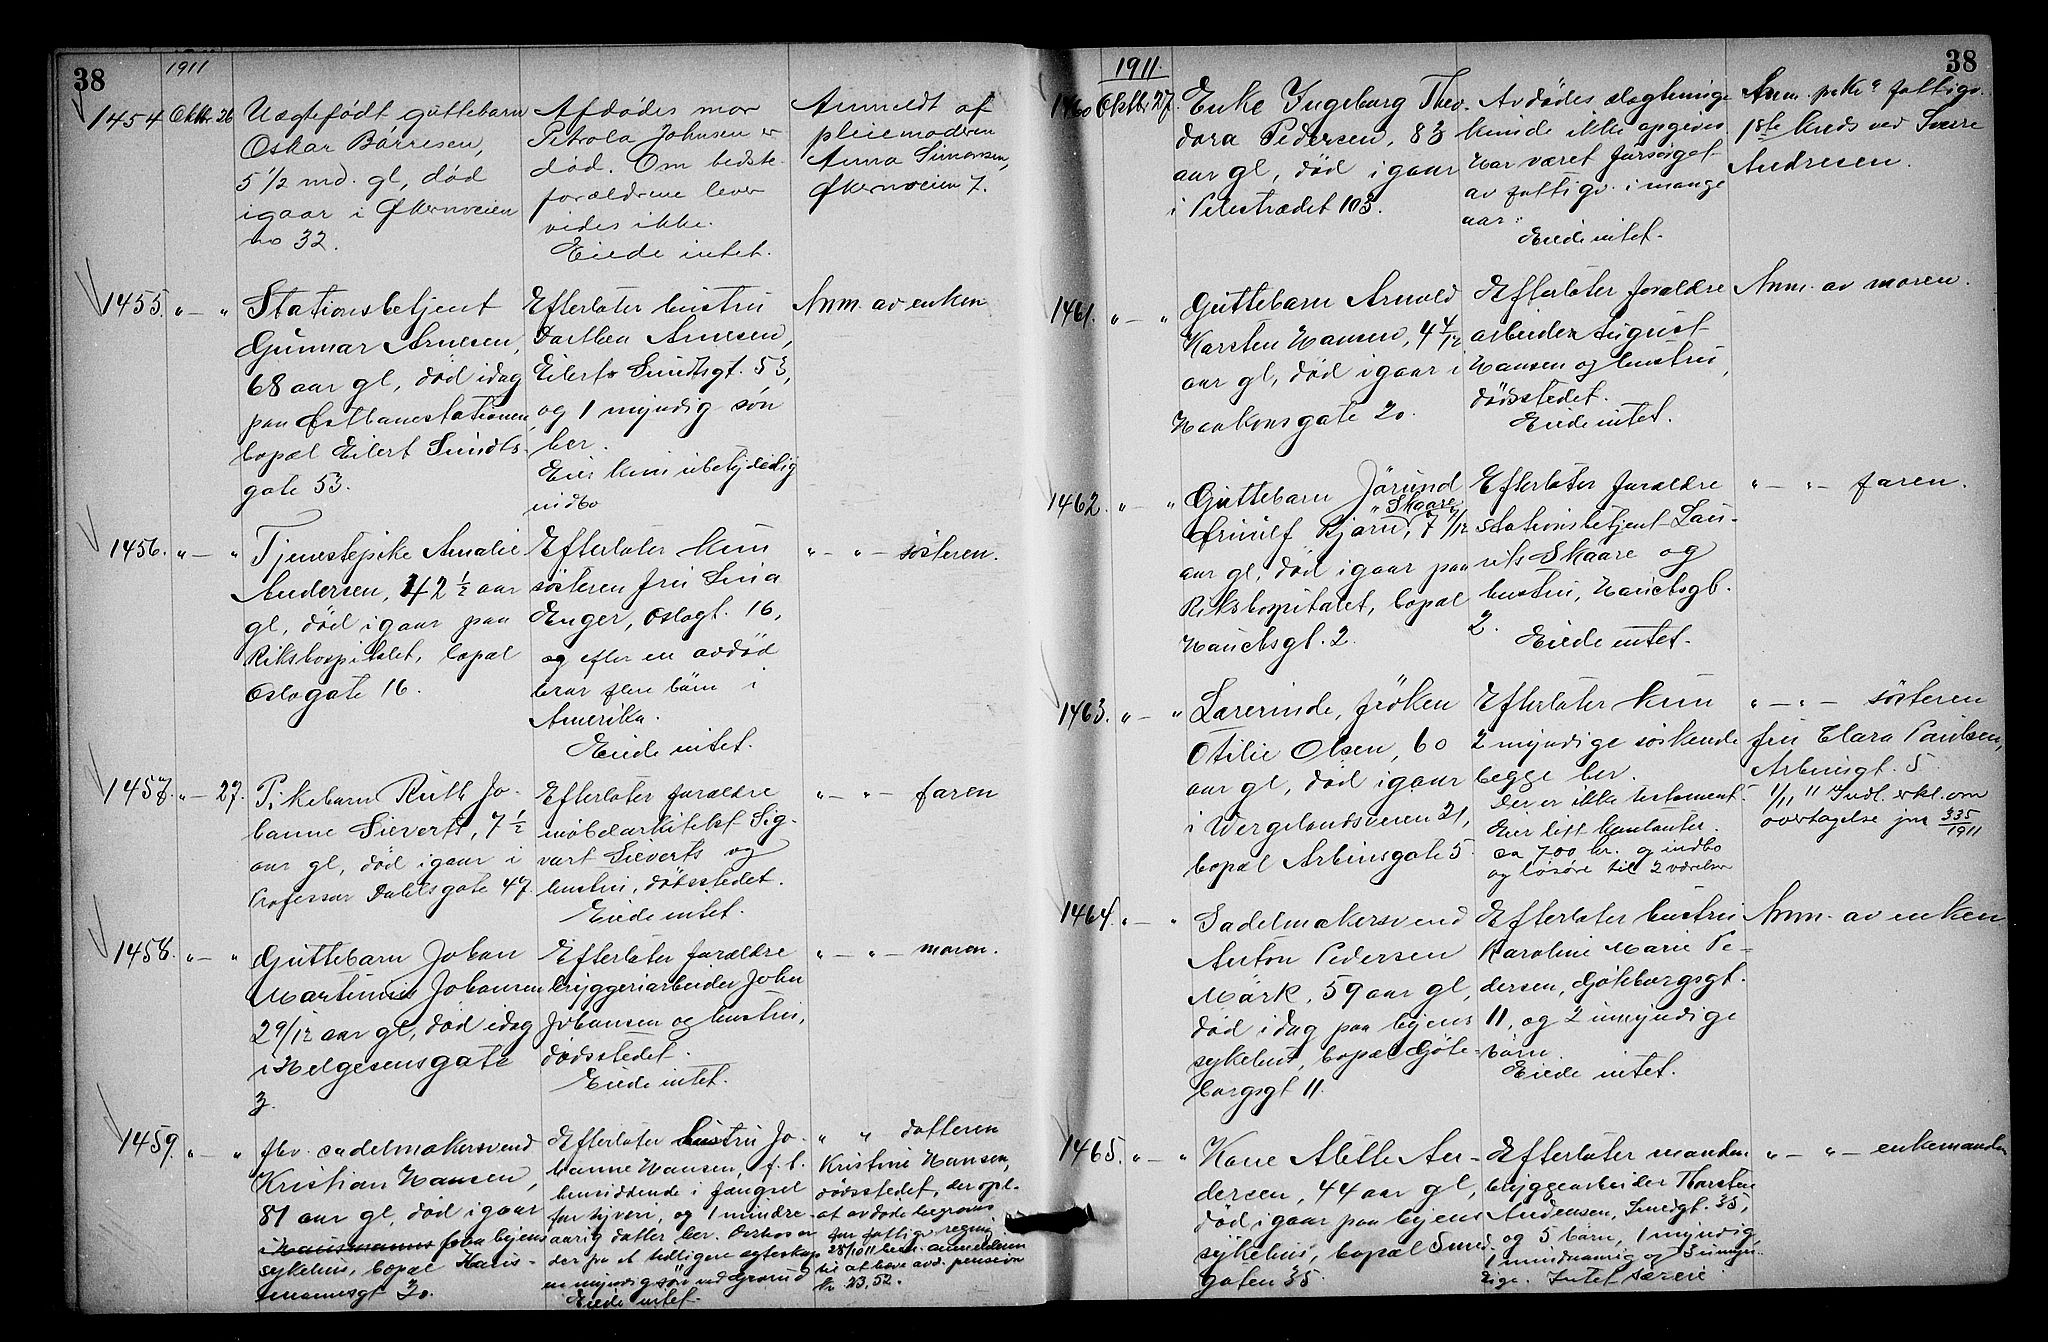 38
1911
1454 Oktbr. 26
Uægtefødt guttebarn
Oskar Børresen,
5 1/2 md. gl, død
igaar i Økernveien
no 32.
Afdødes mor
Petrola Johnsen er
død. Om bedste-
forældrene lever
vides ikke.
Eiede intet.
Anmeldt af
pleiemoderen
Anna Simonsen,
Økernveien 7.
1455. " — "
Stationsbetjent
Gunnar Arnesen,
68 aar gl, død idag
paa Østbanestationen,
bopæl Eilert Sundts-
gate 53.
Efterlater hustru
Dorthea Arnesen,
Eilert Sundtsgt. 53,
og 1 myndig søn
her.
Eier kun ubetydelig
indbo
Anm. av enken
1456. " — "
Tjenestepike Amalie
Andersen, 42 1/2 aar
gl, død igaar paa
Rikshospitalet, bopæl
Oslogate 16.
Efterlater kun
søsteren fru Lina
Enger, Oslogt. 16,
og efter en avdød
bror flere børn i
Amerika.
Eiede intet.
" — " — søsteren.
1457. " — 27.
Pikebarn Ruth Jo-
hanne Sieverts, 7 1/2
aar gl, død igaar i
Professor Dahlsgate 47
Efterlater forældre
møbelarkitekt Sig-
vart Sieverts og
hustru, dødsstedet.
Eiede intet.
" — " — faren
1458. " — "
Guttebarn Johan
Martinius Johansen
2 9/12 aar gl, død idag
i Helgesensgate
3.
Efterlater forældre
bryggeriarbeider John
Johansen og hustru,
dødsstedet.
Eiede intet.
" — " — moren.
1459. " — "
fhv. sadelmakersvend
Kristian Hansen,
81 aar gl, død igaar
i Hausmanns paa byens
sykehus, bopæl Haus-
mannsgt 30.
Efterlater hustru Jo-
hanne Hansen, f. t.
hensiddende i fængsel
for tyveri, og 1 mindre-
aarig datter her. Desuden
der fra et tidligere egteskap
en myndig søn ved Grorud
Eiede intet.
" " datteren
Kristine Hansen,
dødsstedet, der opl.
at avdøde begraves
for fattigv. regning.
28/10 11 anmelderen
til at hæve avd. pension
kr 23,52.
38
1911.
1460 Oktbr. 27.
Enke Ingeborg Theo-
dora Pedersen, 83
aar gl, død igaar
i Pilestrædet 103.
Avdødes slegtninge
kunde ikke opgives
Har været forsørget
av fattigv. i mange
aar.
Eiede intet.
Anm. fattigv.
1ste kreds ved Sverre
Andresen.
1461. " — "
Guttebarn Arnold
Karsten Hansen, 4 4/12
aar gl, død igaar i
Haakonsgate 20.
Efterlater forældre
arbeider August
Hansen og hustru,
dødsstedet.
Eiede intet.
Anm. av moren.
1462. " — "
Guttebarn Jørund
Skaare,
Bjørn, 7 7/12
aar gl, død igaar paa
Rikshospitalet, bopæl
Hauchsgt. 2.
Efterlater forældre
stationsbetjent Lau-
rits Skaare og
hustru, Hauchsgt.
2.
Eiede intet.
" — " — faren.
1463. " — "
Lærerinde, frøken
Otilie Olsen, 60
aar gl, død igaar
i Wergelandsveien 21,
bopæl Arbinsgate 5
Efterlater kun
2 myndige søskende
begge her.
Der er ikke testament.
Eier litt kontanter
ca 700 kr. og indbo
og løsøre til 2 værelser
" — " — søsteren
fru Clara Paulsen,
Arbinsgt. 5.
1/11 11 Indl. erkl. om
overtagelse jnr 335/1911
1464. " — "
Sadelmakersvend
Anton Pedersen
Mørk, 59 aar gl,
død idag paa byens
sykehus, bopæl Gøte-
borgsgt 11.
Efterlater hustru
Karoline Marie Pe-
dersen, Gøteborgsgt.
11, og 2 umyndige
børn.
Eiede intet.
Anm. av enken
1465. " — "
Kone Alette An-
dersen, 44 aar gl,
død igaar paa byens
sykehus, bopæl Smed-
gaten 35.
Efterlater manden
bryggearbeider Thorsten
Andersen, Smedgt. 35,
og 5 børn, 1 myndig,
1 mindreaarig og 3 umyn-
dige. Intet særeie
" — " — enkemanden